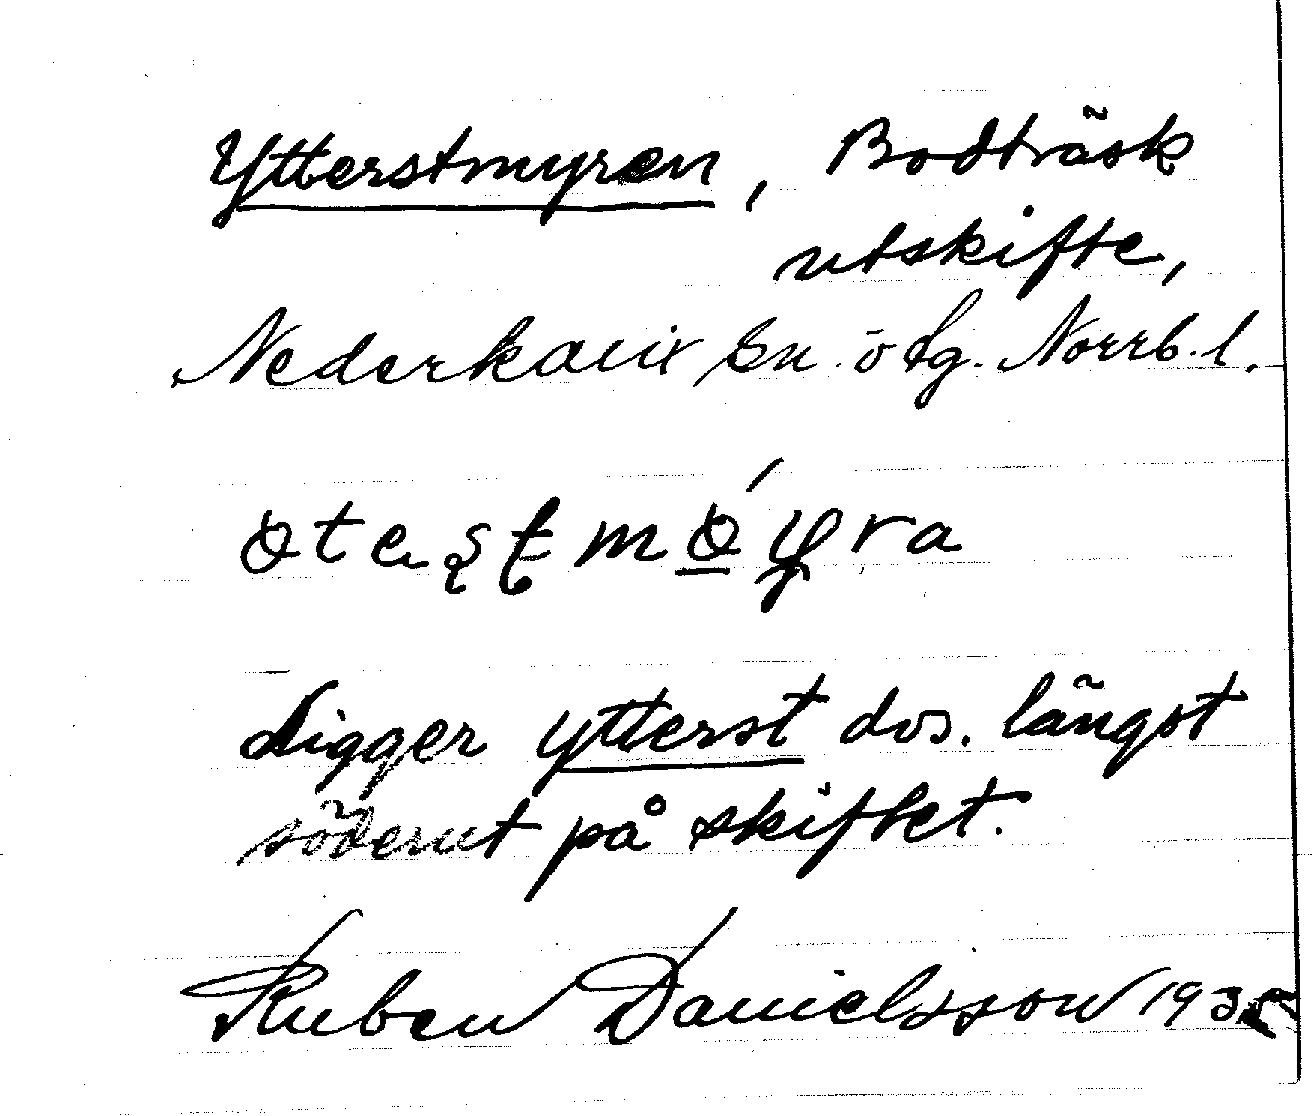 Ytterstmyren, Bodträsk
utskifte,
Nederkalix sn. o tg. Norrb. l.
digger ytterst dvs. längst
söderut på skiftet.
Ruben Danielsson 1935